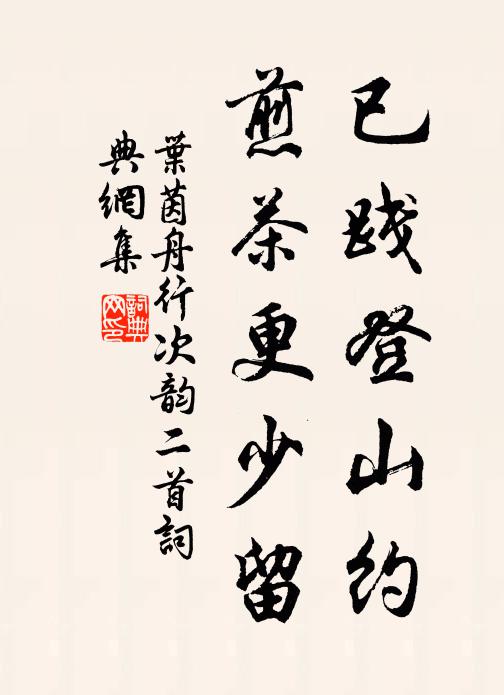 已践登山約
煎茶更少留
葉茵舟行次韵二首詞
典網集
詞典
网印